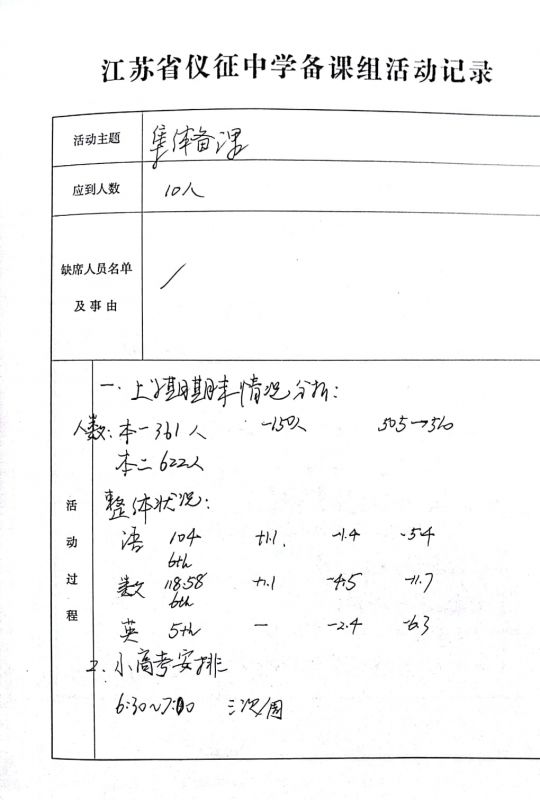 江苏省仪征中学备课组活动记录
活动主题 集体备课
应到人数 10人
缺席人员名单
及事由 /
活动过程
一、上学期期末情况分析:
人数:本一361人 -150人 505→510
本二622人
整体状况:
语 104 +1.1. -1.4 -5.4
6th
数 118.58 +1.1 -4.5 -11.7
6th
英 5th - -2.4 -6.3
2、小高考安排
6:30~7:00 三次/周